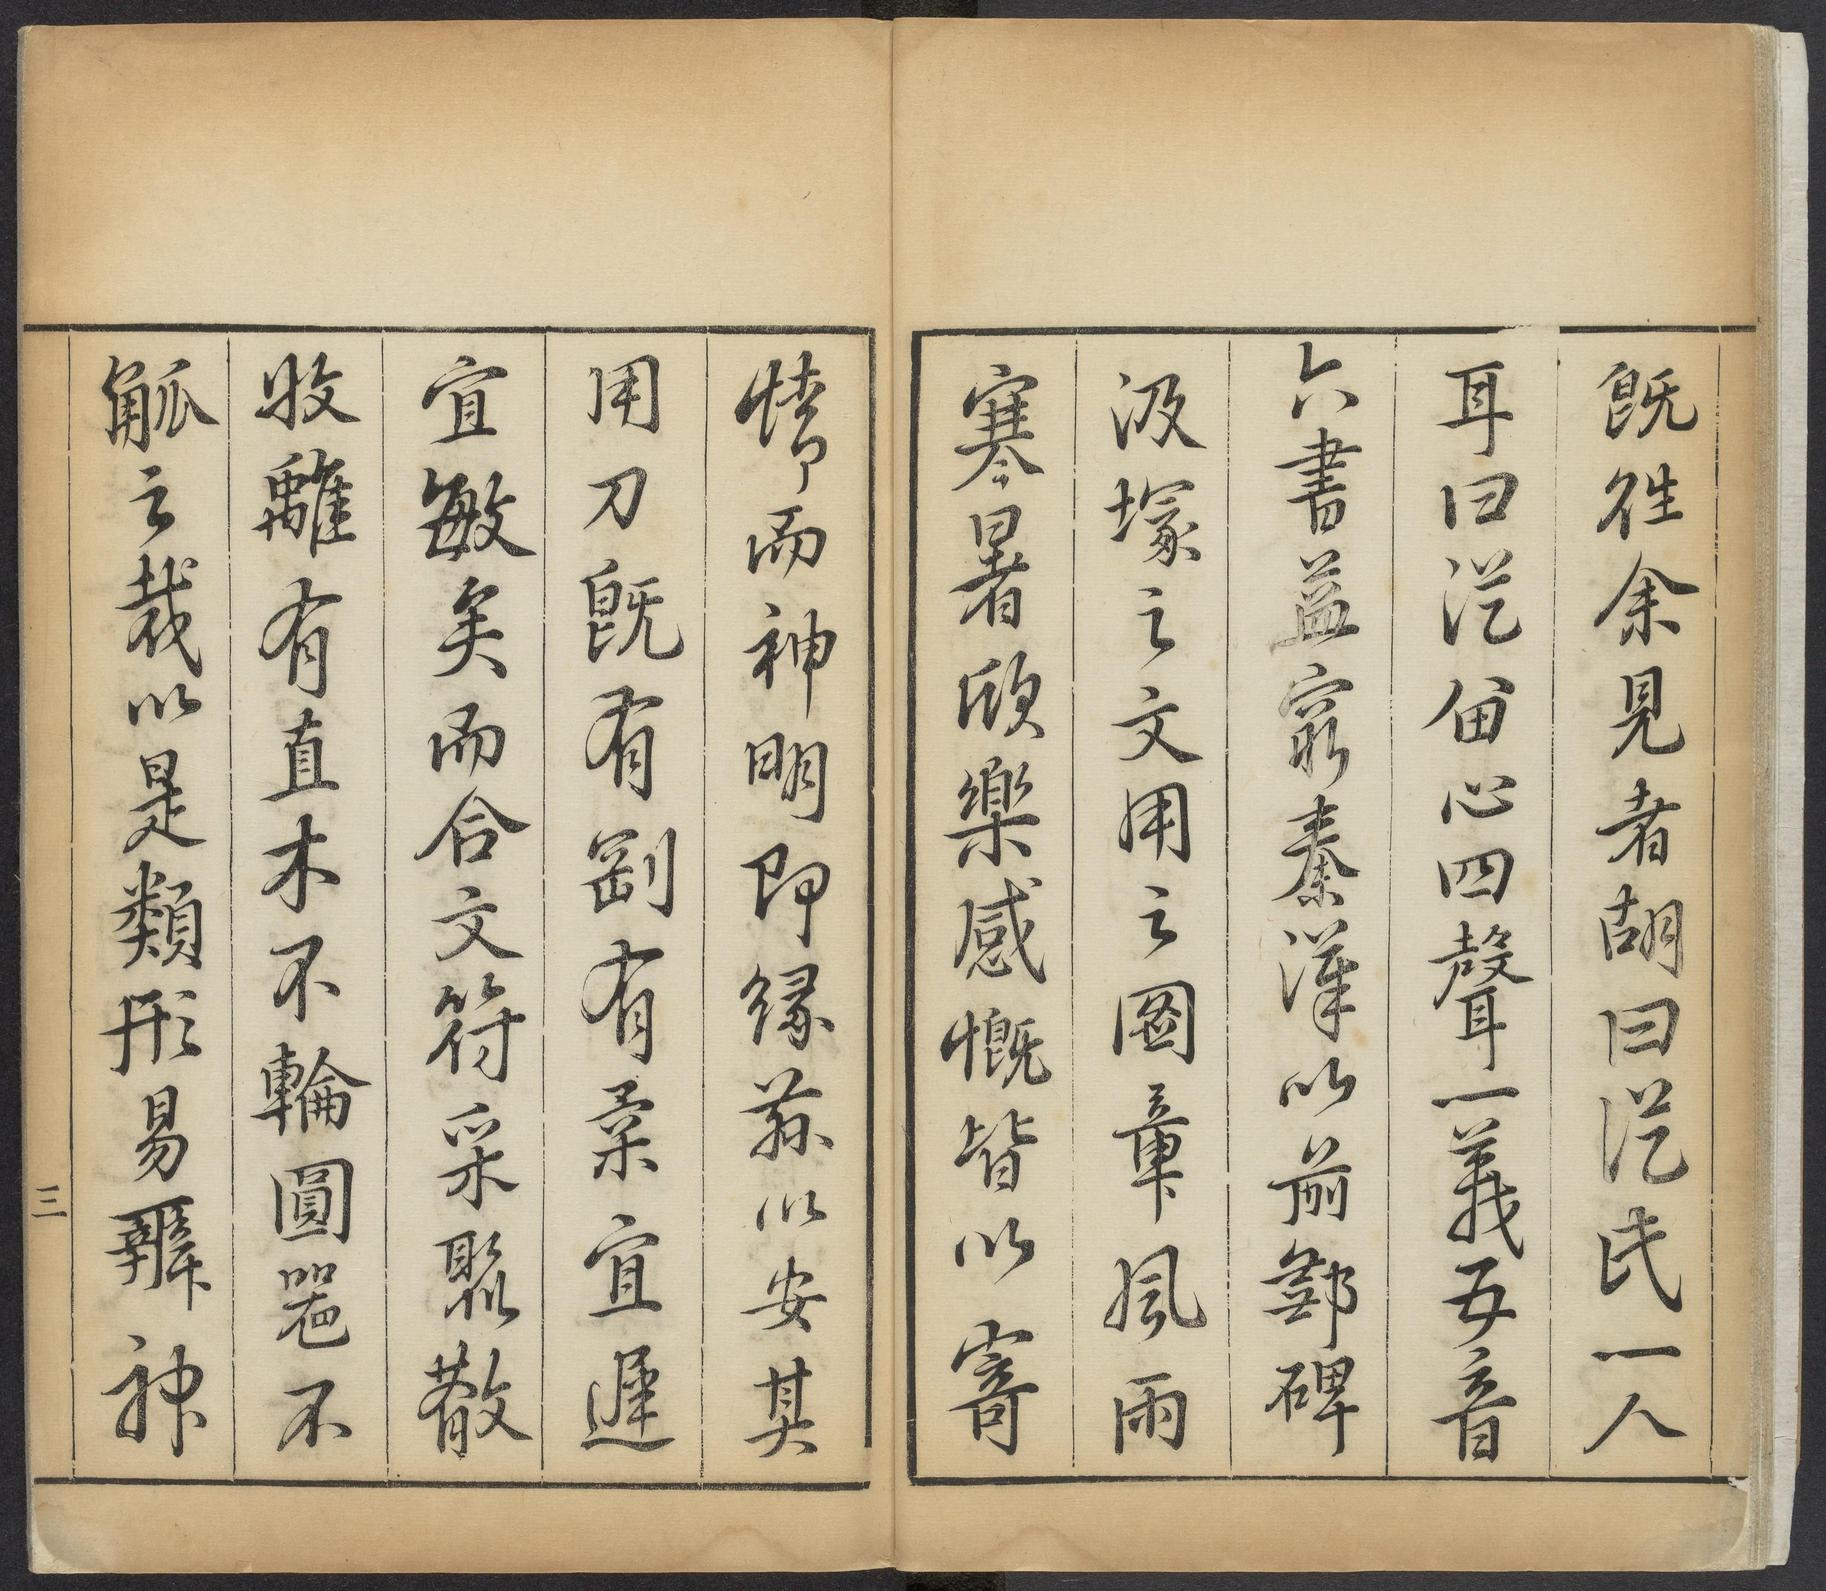 既往余見者胡曰從氏一人
耳曰從留心四聲一義五音
六書益窮秦漢以前鄴碑
汲塚之文用之圖章風雨
寒暑欣樂感慨皆以寄
情而神明即緣茲以安其
用刀既有剛有柔宜遲
宜敏矣而合文符采聚散
收離有直木不輪圓器不
觚之裁以是類形易辨神
三